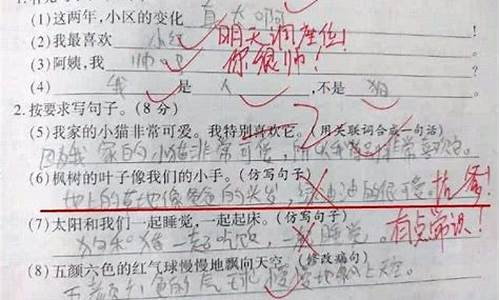 (1)这两年,小区的变化 真大啊
(2)我最喜欢 小红 明天调座位!
(3)阿姨,我 帅吧 你很帅!
(4) 我 是 人 ,不是 狗
2.按要求写句子。(8 分)
(5)我家的小猫非常可爱。我特别喜欢它。(用关联词合成一句话)
因为我家的小猫非常可爱,所以我特别非常喜欢它。
(6)枫树的叶子像我们的小手。(仿写句子)
地上的草地像爸爸的头发,绿油油的很可爱。抗爹!
(7)太阳和我们一起睡觉,一起起床。(仿写句子)
狗和猪一起吃饭,一起睡觉。有点常识!
(8)五颜六色的红气球慢慢地飘向天空。(修改病句)
五颜六色的气球慢慢地飘上天空。